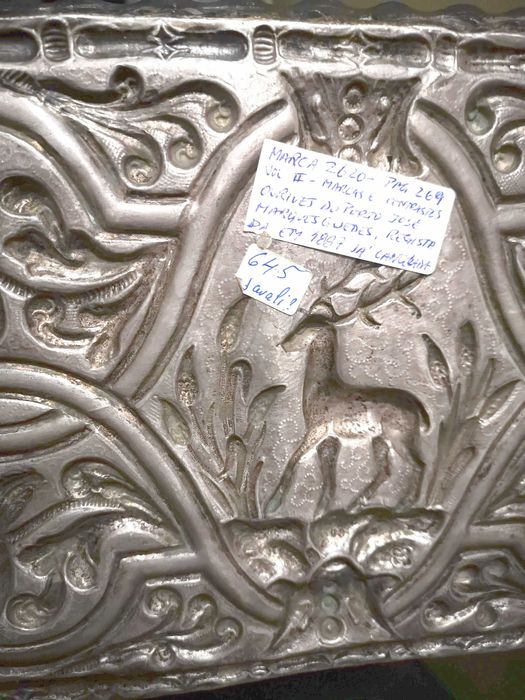 MARCA 2620 - PAG 269
VOL II - MARCAS E CONTRASTES
OURIVES DO PORTO JOSÉ
MARQUES GUEDES, REGISTA
DA EM 1887 JÁ CANCELADA
645